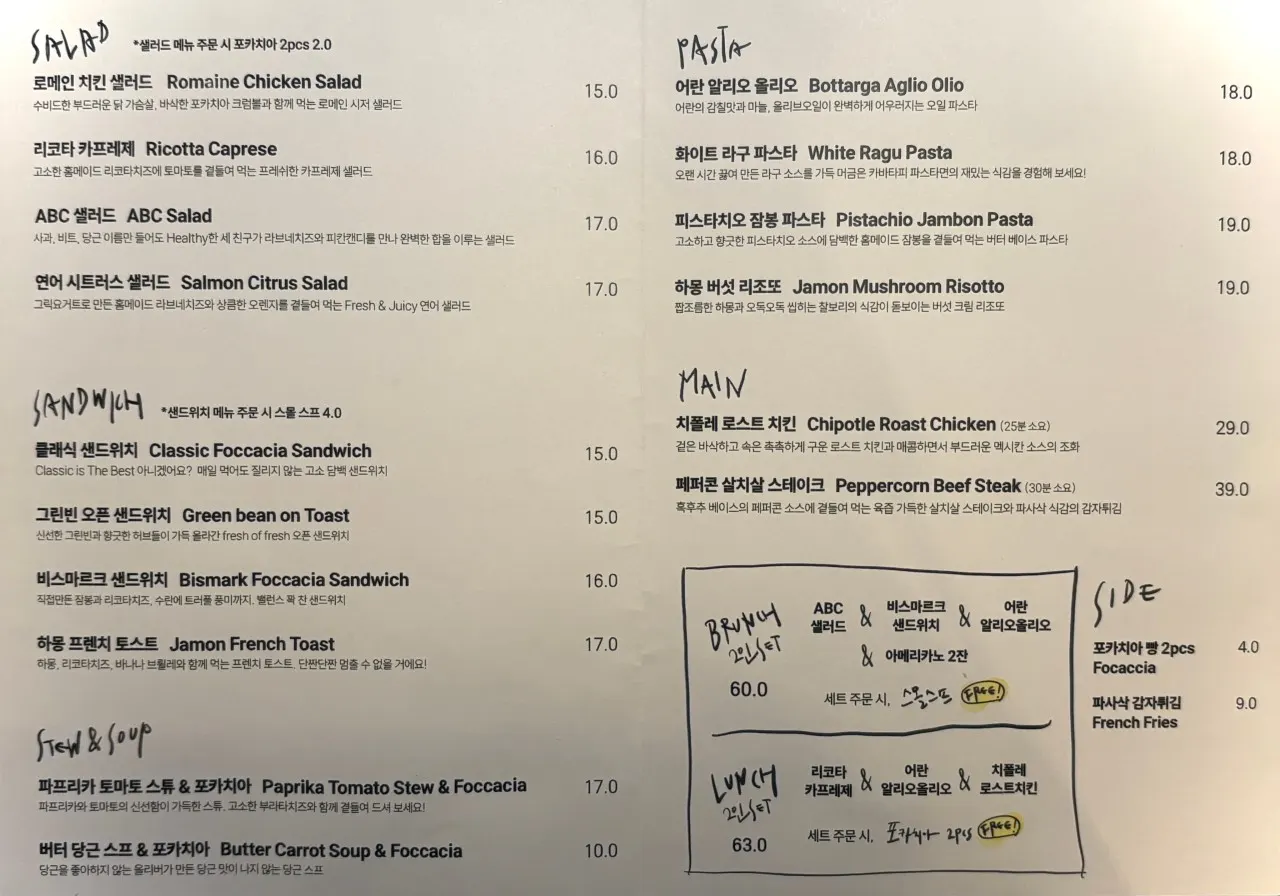 SALAD *샐러드 메뉴 주문 시 포카치아 2pcs 2.0
로메인 치킨 샐러드 Romaine Chicken Salad 15.0
수비드한 부드러운 닭 가슴살, 바삭한 포카치아 크럼블과 함께 먹는 로메인 시저 샐러드
리코타 카프레제 Ricotta Caprese 16.0
고소한 홈메이드 리코타치즈에 토마토를 곁들여 먹는 프레쉬한 카프레제 샐러드
ABC 샐러드 ABC Salad 17.0
사과, 비트, 당근 이름만 들어도 Healthy한 세 친구가 라브네치즈와 피칸캔디를 만나 완벽한 합을 이루는 샐러드
연어 시트러스 샐러드 Salmon Citrus Salad 17.0
그릭요거트로 만든 홈메이드 라브네치즈와 상큼한 오렌지를 곁들여 먹는 Fresh & Juicy 연어 샐러드
SANDWICH *샌드위치 메뉴 주문 시 스몰 스프 4.0
클래식 샌드위치 Classic Foccacia Sandwich 15.0
Classic is The Best 아니겠어요? 매일 먹어도 질리지 않는 고소 담백 샌드위치
그린빈 오픈 샌드위치 Green bean on Toast 15.0
신선한 그린빈과 향긋한 허브들이 가득 올라간 fresh of fresh 오픈 샌드위치
비스마르크 샌드위치 Bismark Foccacia Sandwich 16.0
직접만든 잠봉과 리코타치즈, 수란에 트러플 풍미까지. 밸런스 꽉 찬 샌드위치
하몽 프렌치 토스트 Jamon French Toast 17.0
하몽, 리코타치즈, 바나나 브륄레와 함께 먹는 프렌치 토스트. 단짠단짠 멈출 수 없을 거에요!
STEW & SOUP
파프리카 토마토 스튜 & 포카치아 Paprika Tomato Stew & Foccacia 17.0
파프리카와 토마토의 신선함이 가득한 스튜. 고소한 부라타치즈와 함께 곁들여 드셔 보세요!
버터 당근 스프 & 포카치아 Butter Carrot Soup & Foccacia 10.0
당근을 좋아하지 않는 올리버가 만든 당근 맛이 나지 않는 당근 스프
PASTA
어란 알리오 올리오 Bottarga Aglio Olio 18.0
어란의 감칠맛과 마늘, 올리브오일이 완벽하게 어우러지는 오일 파스타
화이트 라구 파스타 White Ragu Pasta 18.0
오랜 시간 끓여 만든 라구 소스를 가득 머금은 카바타피 파스타면의 재밌는 식감을 경험해 보세요!
피스타치오 잠봉 파스타 Pistachio Jambon Pasta 19.0
고소하고 향긋한 피스타치오 소스에 담백한 홈메이드 잠봉을 곁들여 먹는 버터 베이스 파스타
하몽 버섯 리조또 Jamon Mushroom Risotto 19.0
짭조름한 하몽과 오독오독 씹히는 찰보리의 식감이 돋보이는 버섯 크림 리조또
MAIN
치폴레 로스트 치킨 Chipotle Roast Chicken (25분 소요) 29.0
겉은 바삭하고 속은 촉촉하게 구운 로스트 치킨과 매콤하면서 부드러운 멕시칸 소스의 조화
페퍼콘 살치살 스테이크 Peppercorn Beef Steak (30분 소요) 39.0
흑후추 베이스의 페퍼콘 소스에 곁들여 먹는 육즙 가득한 살치살 스테이크와 파사삭 식감의 감자튀김
BRUNCH
2인 SET
60.0
ABC 샐러드 & 비스마르크 샌드위치 & 어란 알리오올리오
& 아메리카노 2잔
세트 주문 시, 스몰스프 FREE!
LUNCH
2인 SET
63.0
리코타 카프레제 & 어란 알리오올리오 & 치폴레 로스트치킨
세트 주문 시, 포카치아 2pcs FREE!
SIDE
포카치아 빵 2pcs 4.0
Focaccia
파사삭 감자튀김 9.0
French Fries